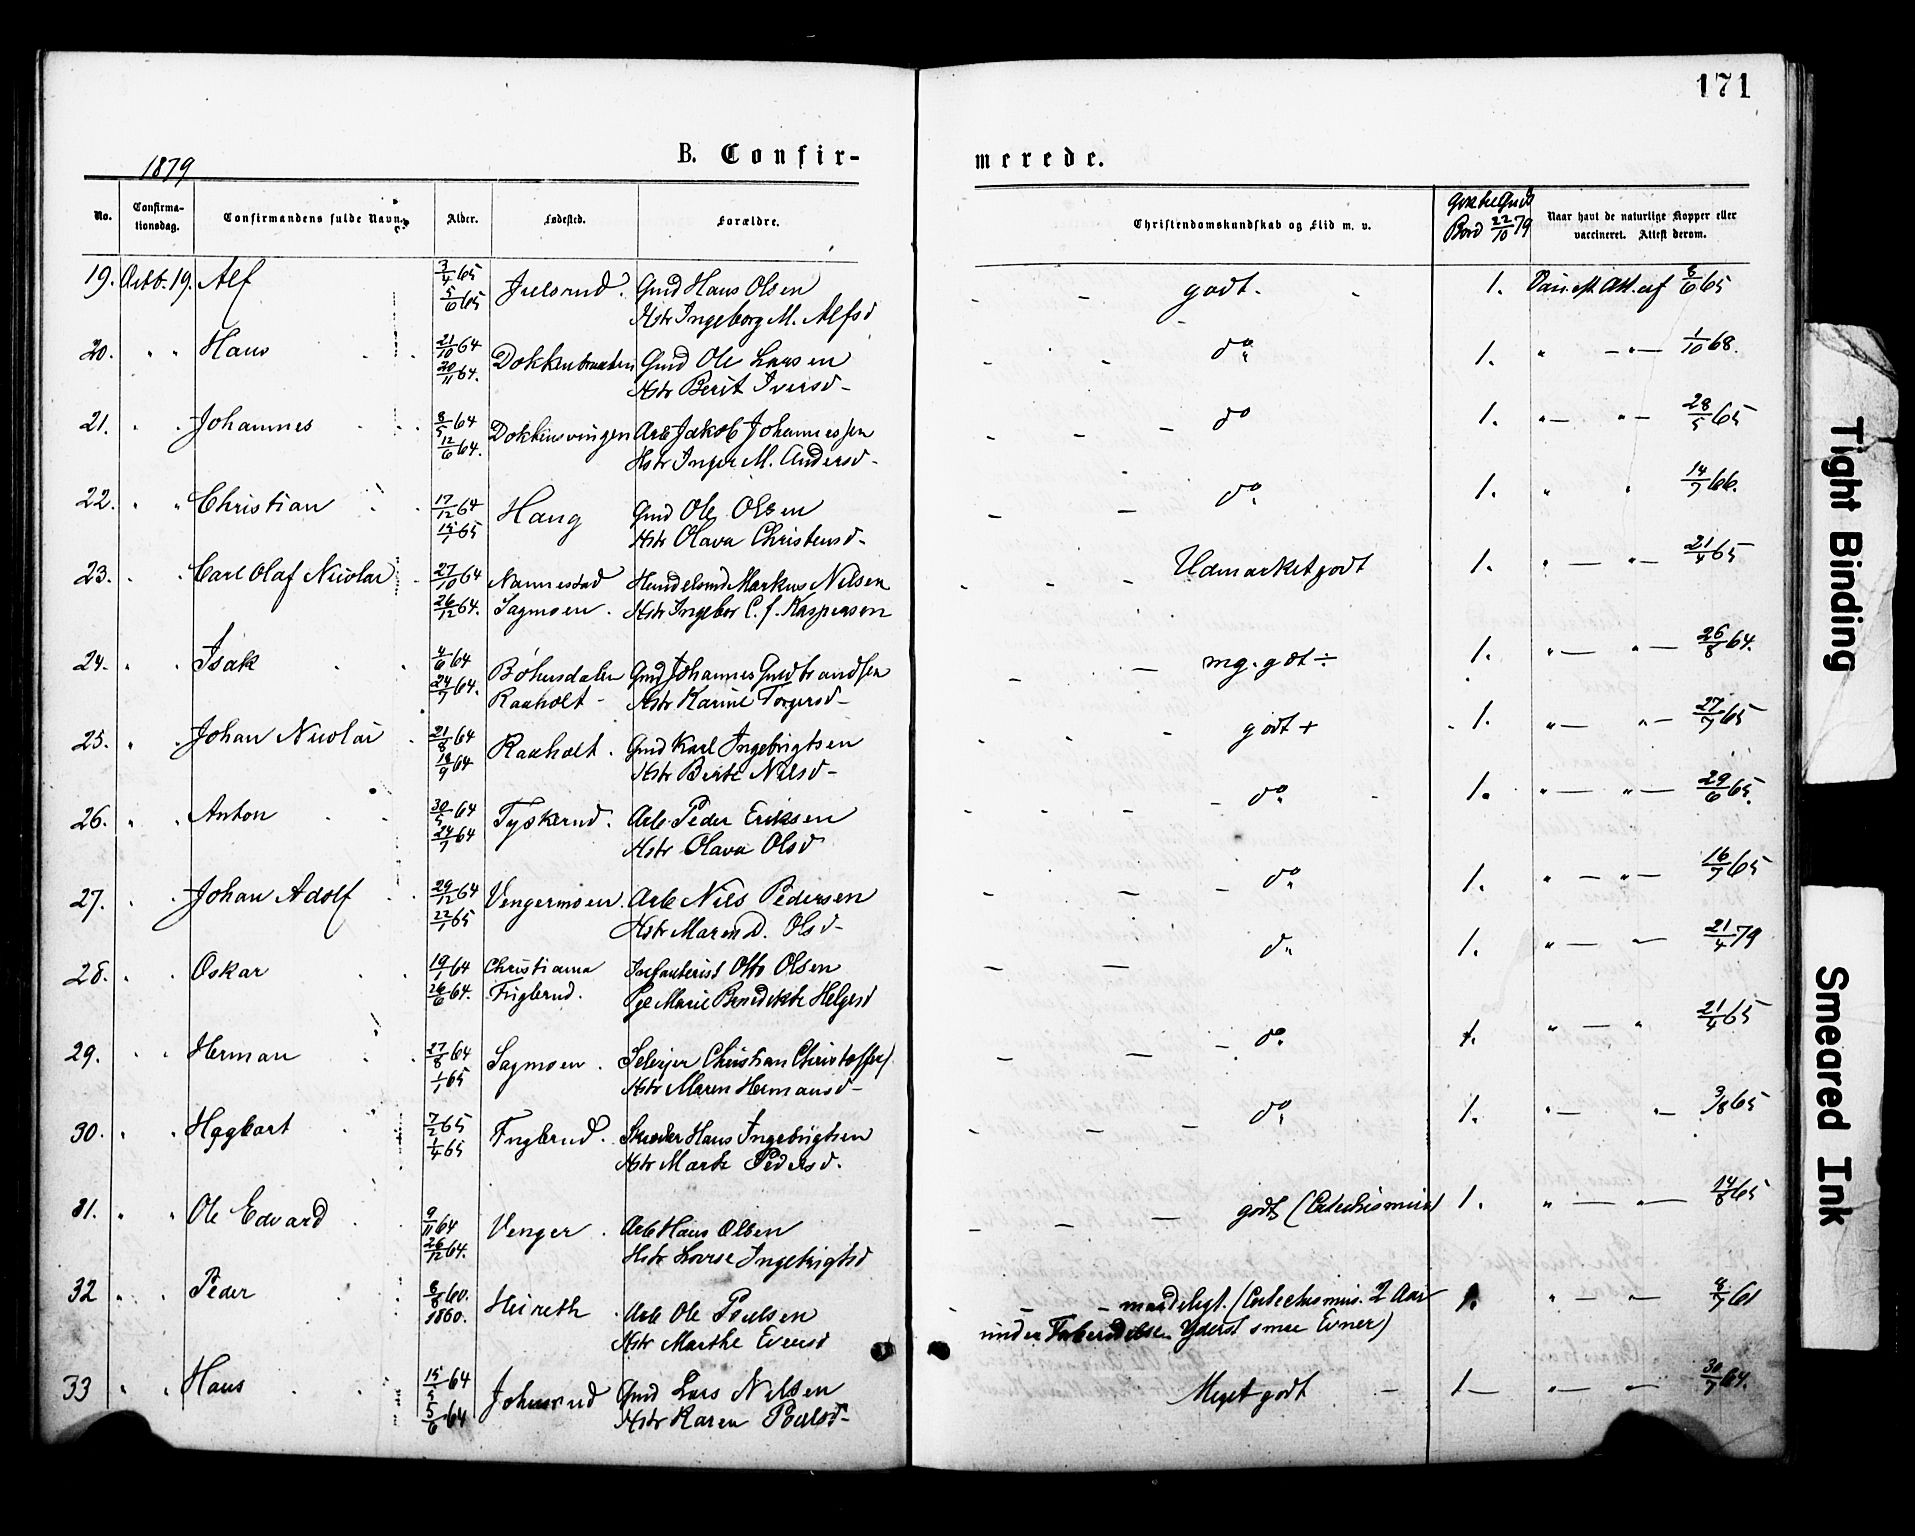 171
1879
B. Confir-
merede.
No.
Confirma-
tionsdag.
Confirmandens fulde Navn.
Alder.
Fødested.
Forældre.
Christendomskundskab og Flid m. v.
Bord 22/10 79
Naar havt de naturlige Kopper eller
vaccineret. Attest derom.
19. Octb. 19. Alf 3/4 65 Gmd Hans Olsen godt. 1. Att. af 8/6 65
5/6 65 Hstr Ingeborg M. Alfsd
20. " " Hans 21/10 64 Gmd Ole Larsen do 1. " — " — 1/10 68.
20/11 64. Hstr Berit Iversd -
21. " " Johannes 8/5 64 Dokkensvingen Arb Jakob Johannessen do 1. " — " — 28/5 65
12/6 64. Hstr Inger M. Andersd -
22. " " Christian 17/12 64 Haug Gmd Ole Olsen do 1. " " 14/7 66.
15/1 65 Hstr Olava Christensd -
23. " " Carl Olaf Nicolai 27/10 64 Nannestad Markus Nilsen Udmærket godt 1. " — " — 21/4 65
26/12 64. Sagmoen . Hstr Ingebor C. f. Kaspersen
24. " " Isak 4/6 64 Bøhnsdalen Gmd Johannes Gudbrandsen mg. godt ÷ 1. " — " — 26/8 64.
24/7 64. Raaholt - Hstr Karine Torgersd -
25. " " Johan Nicolai 21/8 64 Raaholt . Gmd Karl Ingebrigtsen godt + 1. " — " — 27/7 65
18/9 64 Hstr Berte Nilsd -
26. " " Anton 30/5 64 Tyskerud . Arb. Peder Eriksen do 1. " — " — 29/6 65.
24/7 64 Hstr Olava Olsd
27. " " Johan Adolf 29/12 64 Vengermoen . Arb Nils Pedersen do 1. " — " — 16/7 65
22/1 65 Hstr Maren D. Olsd -
28. " " Oskar 19/1 64 Christiania Infanterist Otto Olsen do 1. " — " — 21/4 79
26/6 64. Fuglerud . Pge Marie Benedikte Helgesd
29. " " Herman 27/8 64 Sagmoen . Selveier Christian Christoffers do 1. " — " 21/4 65
1/1 65 Hstr Maren Hermansd -
30. " " Hagbart 7/2 65 Fuglerud . Hans Ingebrigtsen do 1. " — " — 3/8 65
1/4 65 Hstr Marte Pedersd.
31. " " Ole Edvard 9/11 64 Venger . Arb Hans Olsen godt (Catechismus) 1. " — " — 14/8 65
26/12 64. Hstr Lovise Ingebrigtsd
32 " " Peder 8/8 60. Arb Ole Poulsen maadeligt. (Catechismus. 2 Aar 1. " — " — 8/7 61
1860. Hstr Marthe Eversd under Forberedelse. Yderst smaa Evner)
33 " " Hans 15/5 64 Johnsrud Gmd Lars Nilsen Meget godt 1 — " — " — 30/7 64.
5/6 64 Hstr Karen Poulsd -
Tight Binding
Smeared Ink